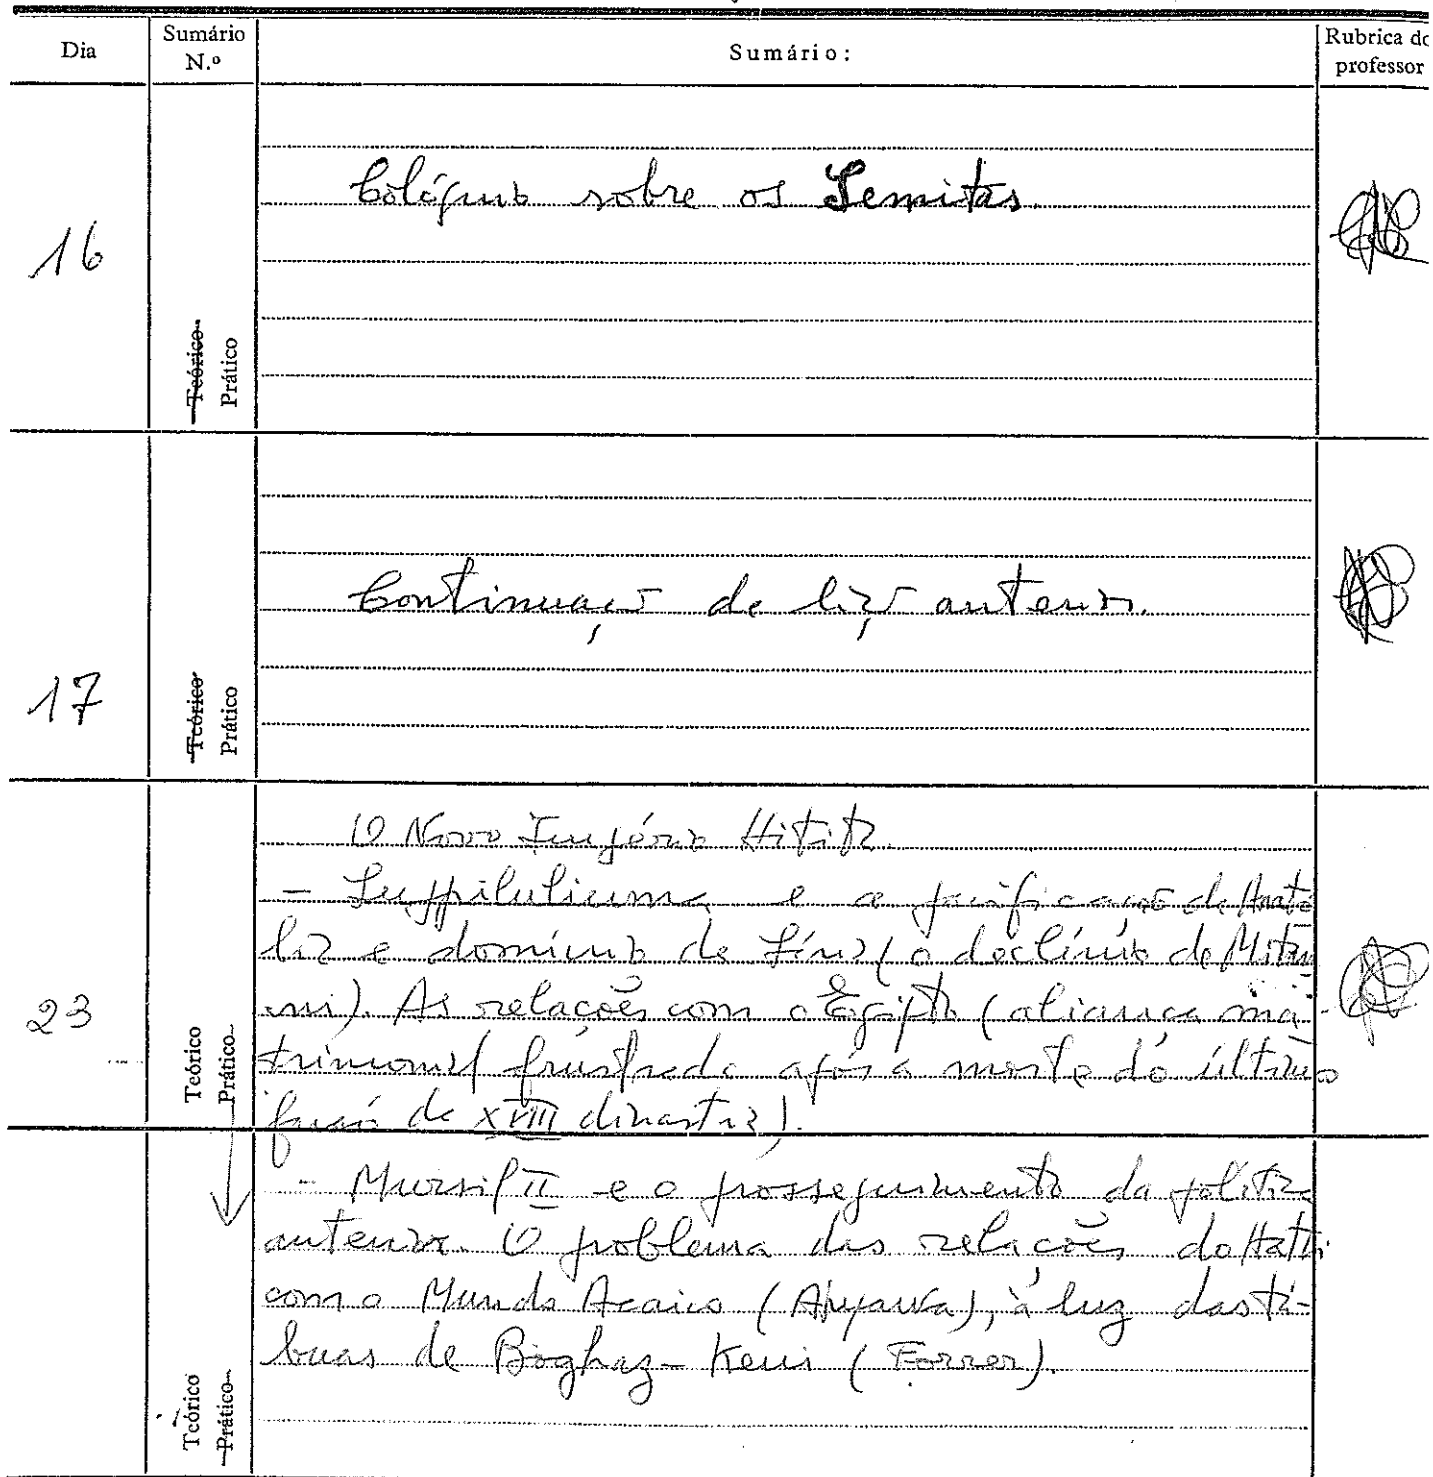 Dia
Sumário N.º
Sumário:
Rubrica do professor
16
Teórico
Prático
Colóquio sobre os Semitas.
17
Teórico
Prático
Continuação da lição anterior.
23
Teórico
Prático
O Novo Império Hitita.
- Suppiluliuma e a pacificação da Anató
lia e domínio da Síria (o declínio de Mitan
ni). As relações com o Egipto (aliança ma-
trimonial frustrada após a morte do último
faraó da XVIII dinastia).
Teórico
Prático
- Mursil II e o prosseguimento da política
anterior. O problema das relações do Hatti
com o Mundo Acaico (Ahyawa), à luz das tá-
buas de Boghaz-Keui (Forrer).